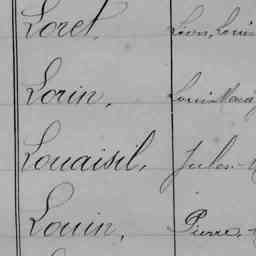 Loret, Léon, Louis
Lorin, Louis Marie
Louaisil, Jules
Louin, Pierre,